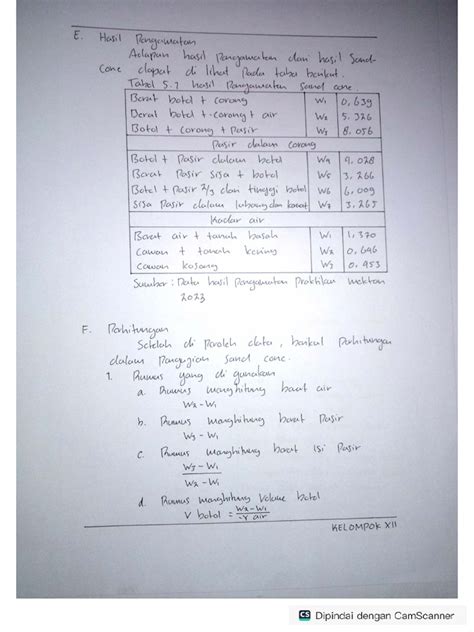 E. Hasil Pengamatan
Adapun hasil Pengamatan dari hasil Sand-
Cone dapat di lihat Pada tabel berikut.
Tabel 5.1 hasil Pengamatan Sand cone
Berat botol + corong W1 0,639
Berat botol + corong + air W2 5.326
Botol + corong + Pasir W3 8.056
Pasir dalam corong
Botol + Pasir dalam botol W4 9.028
Berat Pasir sisa + botol W5 3.266
Botol + Pasir 2/3 dari tinggi botol W6 6,009
Sisa Pasir dalam lubang dan W7 3.265
Kadar air
Berat air + tanah basah W1 1,370
Cawan + tanah kering W2 0.646
Cawan kosong W3 0.453
Sumber : Data hasil Pengamatan Praktikan mektan
2023
F. Perhitungan
Setelah di Peroleh data, berikut Perhitungan
dalam Pengujian sand cone.
1. Rumus yang di gunakan
a. Rumus menghitung berat air
W2 - W1
b. Rumus menghitung berat Pasir
W3 - W1
c. Rumus menghitung berat isi Pasir
W3 - W1
W2 - W1
d. Rumus menghitung Volume botol
V botol = W2 - W1
γ air
KELOMPOK XII
CS Dipindai dengan CamScanner